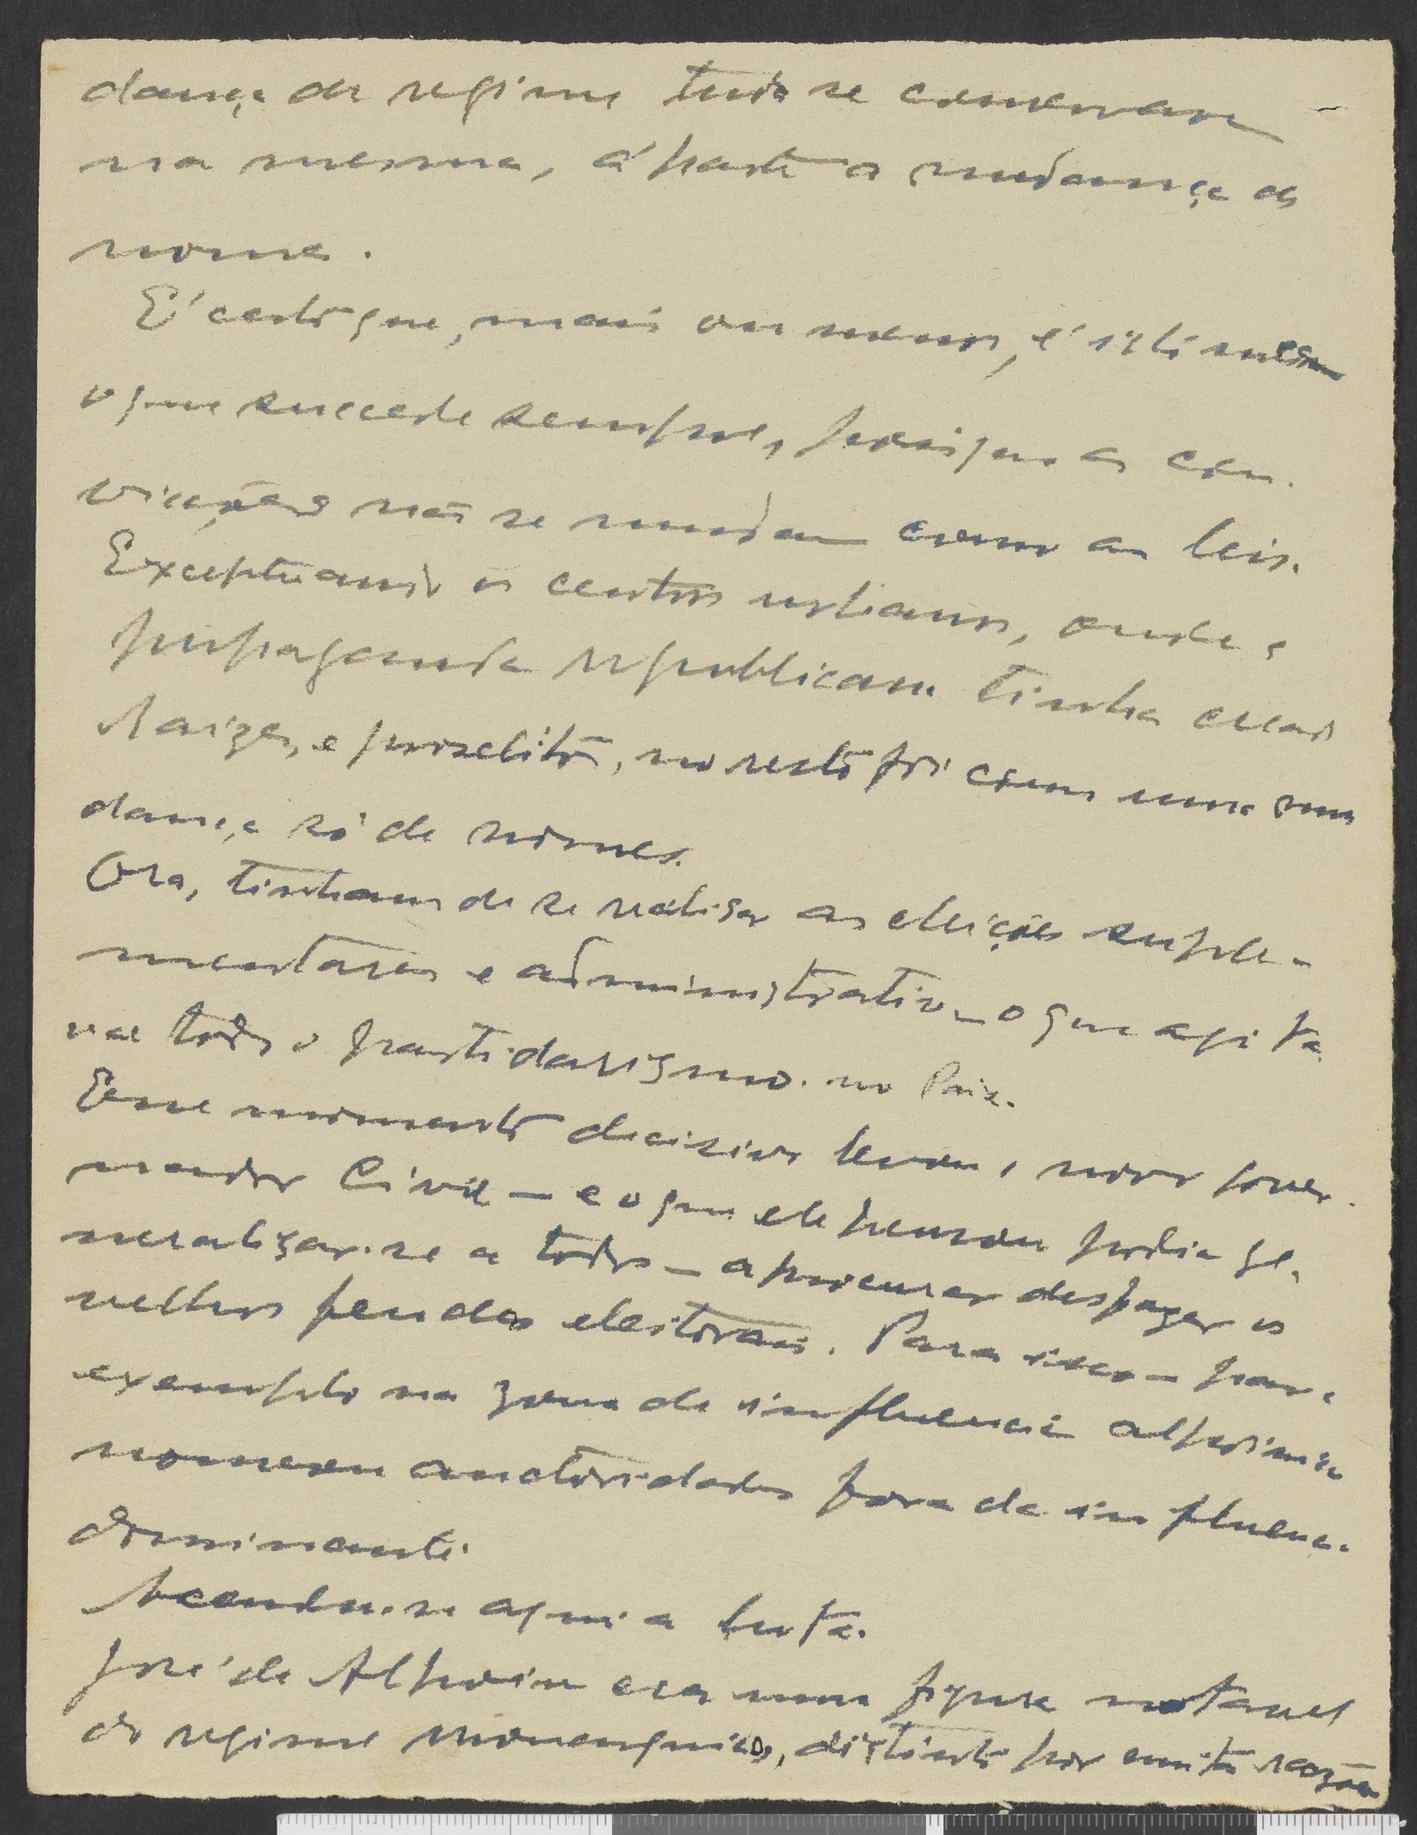 dança de regime tudo se conservava
na mesma, á parte a mudança de
nome.
E' certo que, mais ou menos, é isto mesmo
o que succede sempre, porisque as con-
vicções não se mudam como as leis.
Exceptuando os centros urbanos, onde a
propaganda republicana tinha creado
raizes, e proselitos, no resto foi como uma mu
dança só de nomes.
Ora, tinham de se realisar as eleições suple-
mentares e administrativas o que agita
va todo o partidarismo no Paiz.
Esse momento decisivo levou o novo gover-
nador Civil — e o que ele pensou podia ge-
neralizar-se a todos — a procurar desfazer os
velhos feudos eleitorais. Para isso — por
exemplo na zona de influencia alpoinista
nomeou auctoridades fora da influencia
dominante.
Acendeu-se aqui a luta.
José de Alpoim era uma figura notavel
do regime monarquico, distinto por muitas razões